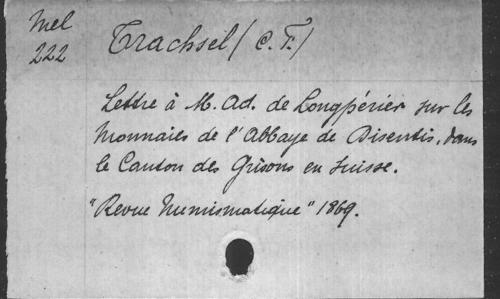 Mel
222
Trachsel (C. F.)
Lettre à M. Ad. de Longpérier sur les
Monnaies de l'Abbaye de Disentis, dans
le Canton des Grisons en Suisse.
"Revue Numismatique" 1869.